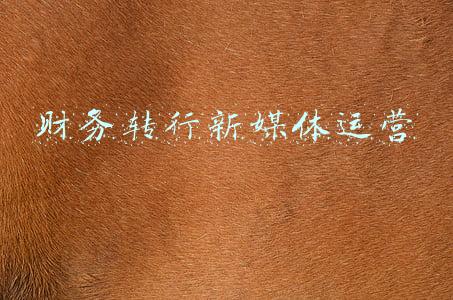 财务转行新媒体运营